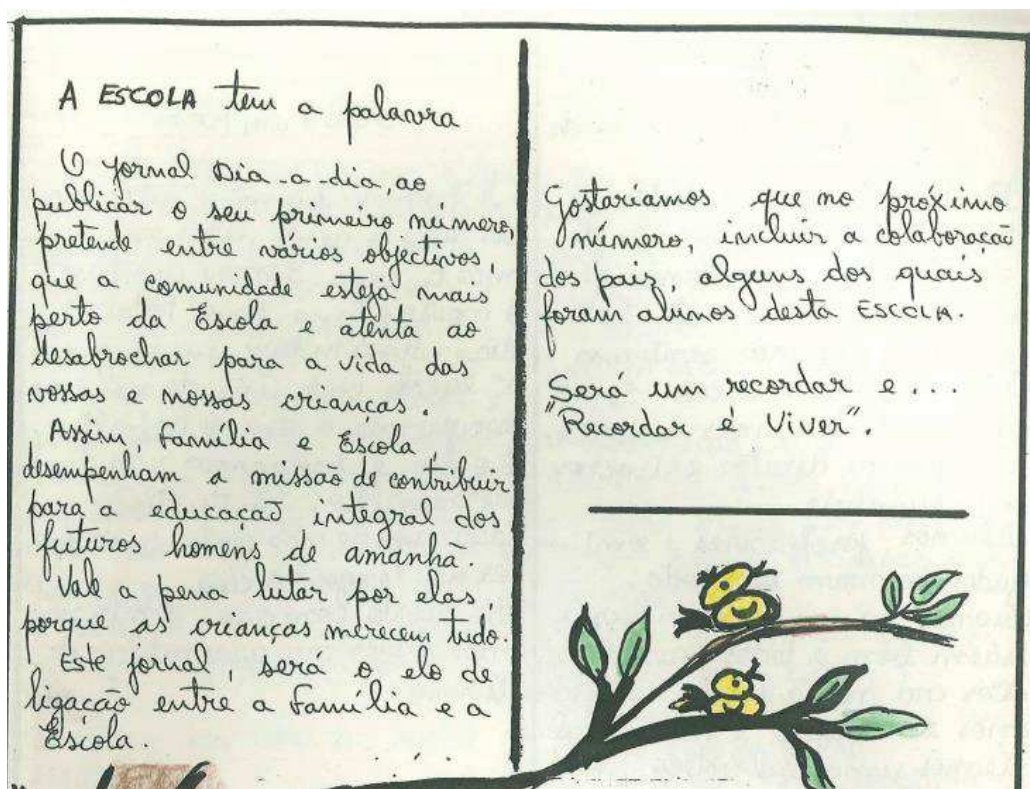 A ESCOLA tem a palavra
O jornal Dia-a-dia, ao
publicar o seu primeiro número,
pretende entre vários objectivos,
que a comunidade esteja mais
perto da Escola e atenta ao
desabrochar para a vida das
vossas e nossas crianças.
Assim, Família e Escola,
desempenham a missão de contribuir
para a educação integral dos
futuros homens de amanhã.
Vale a pena lutar por elas,
porque as crianças merecem tudo.
Este jornal, será o elo de
ligação entre a Família e a
Escola.
Gostaríamos que no próximo
número, incluir a colaboração
dos pais, alguns dos quais,
foram alunos desta ESCOLA.
Será um recordar e...
"Recordar é Viver".